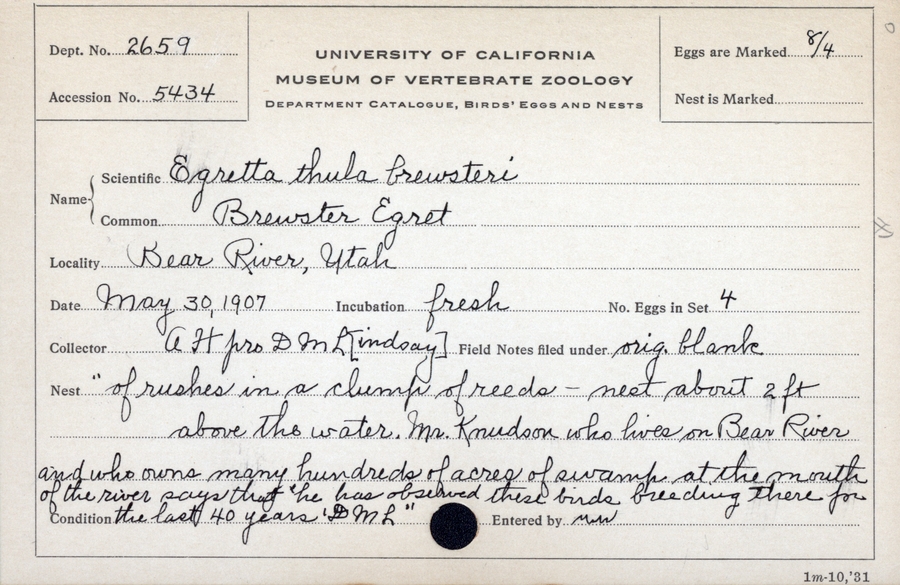 Dept. No. 2659
Accession No. 5434
UNIVERSITY OF CALIFORNIA
MUSEUM OF VERTEBRATE ZOOLOGY
DEPARTMENT CATALOGUE, BIRDS' EGGS AND NESTS
Eggs are Marked 8/4
Nest is Marked
Name
Scientific Egretta thula brewsteri
Common Brewster Egret
Locality Bear River, Utah
Date May 30, 1907 Incubation fresh No. Eggs in Set 4
Collector A H pro D M L[indsay] Field Notes filed under orig. blank
Nest "of rushes in a clump of reeds – nest about 2 ft
above the water. Mr. Knudson who lives on Bear River
and who owns many hundreds of acres of swamp at the mouth
of the river says that he has observed these birds breeding there for
Condition the last 40 years "D M L" Entered by
1m-10,'31